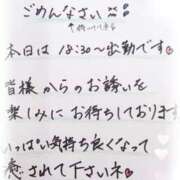 ごめんなさい
本日は18:30~出勤です
皆様からのお誘いを
楽しみにお待ちしております
いっぱい気持ち良くなって
癒されて下さいネ